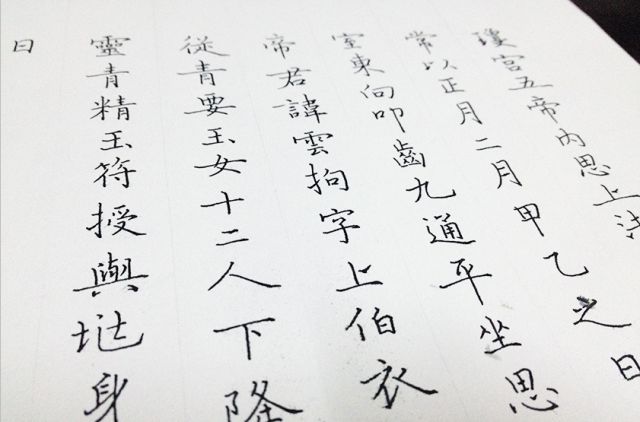 瓊宮五帝內思上法
常以正月二月甲乙之日
室東向叩齒九通平坐思
帝君諱雲拘字上伯衣
從青要玉女十二人下降
靈青精玉符授與身
曰